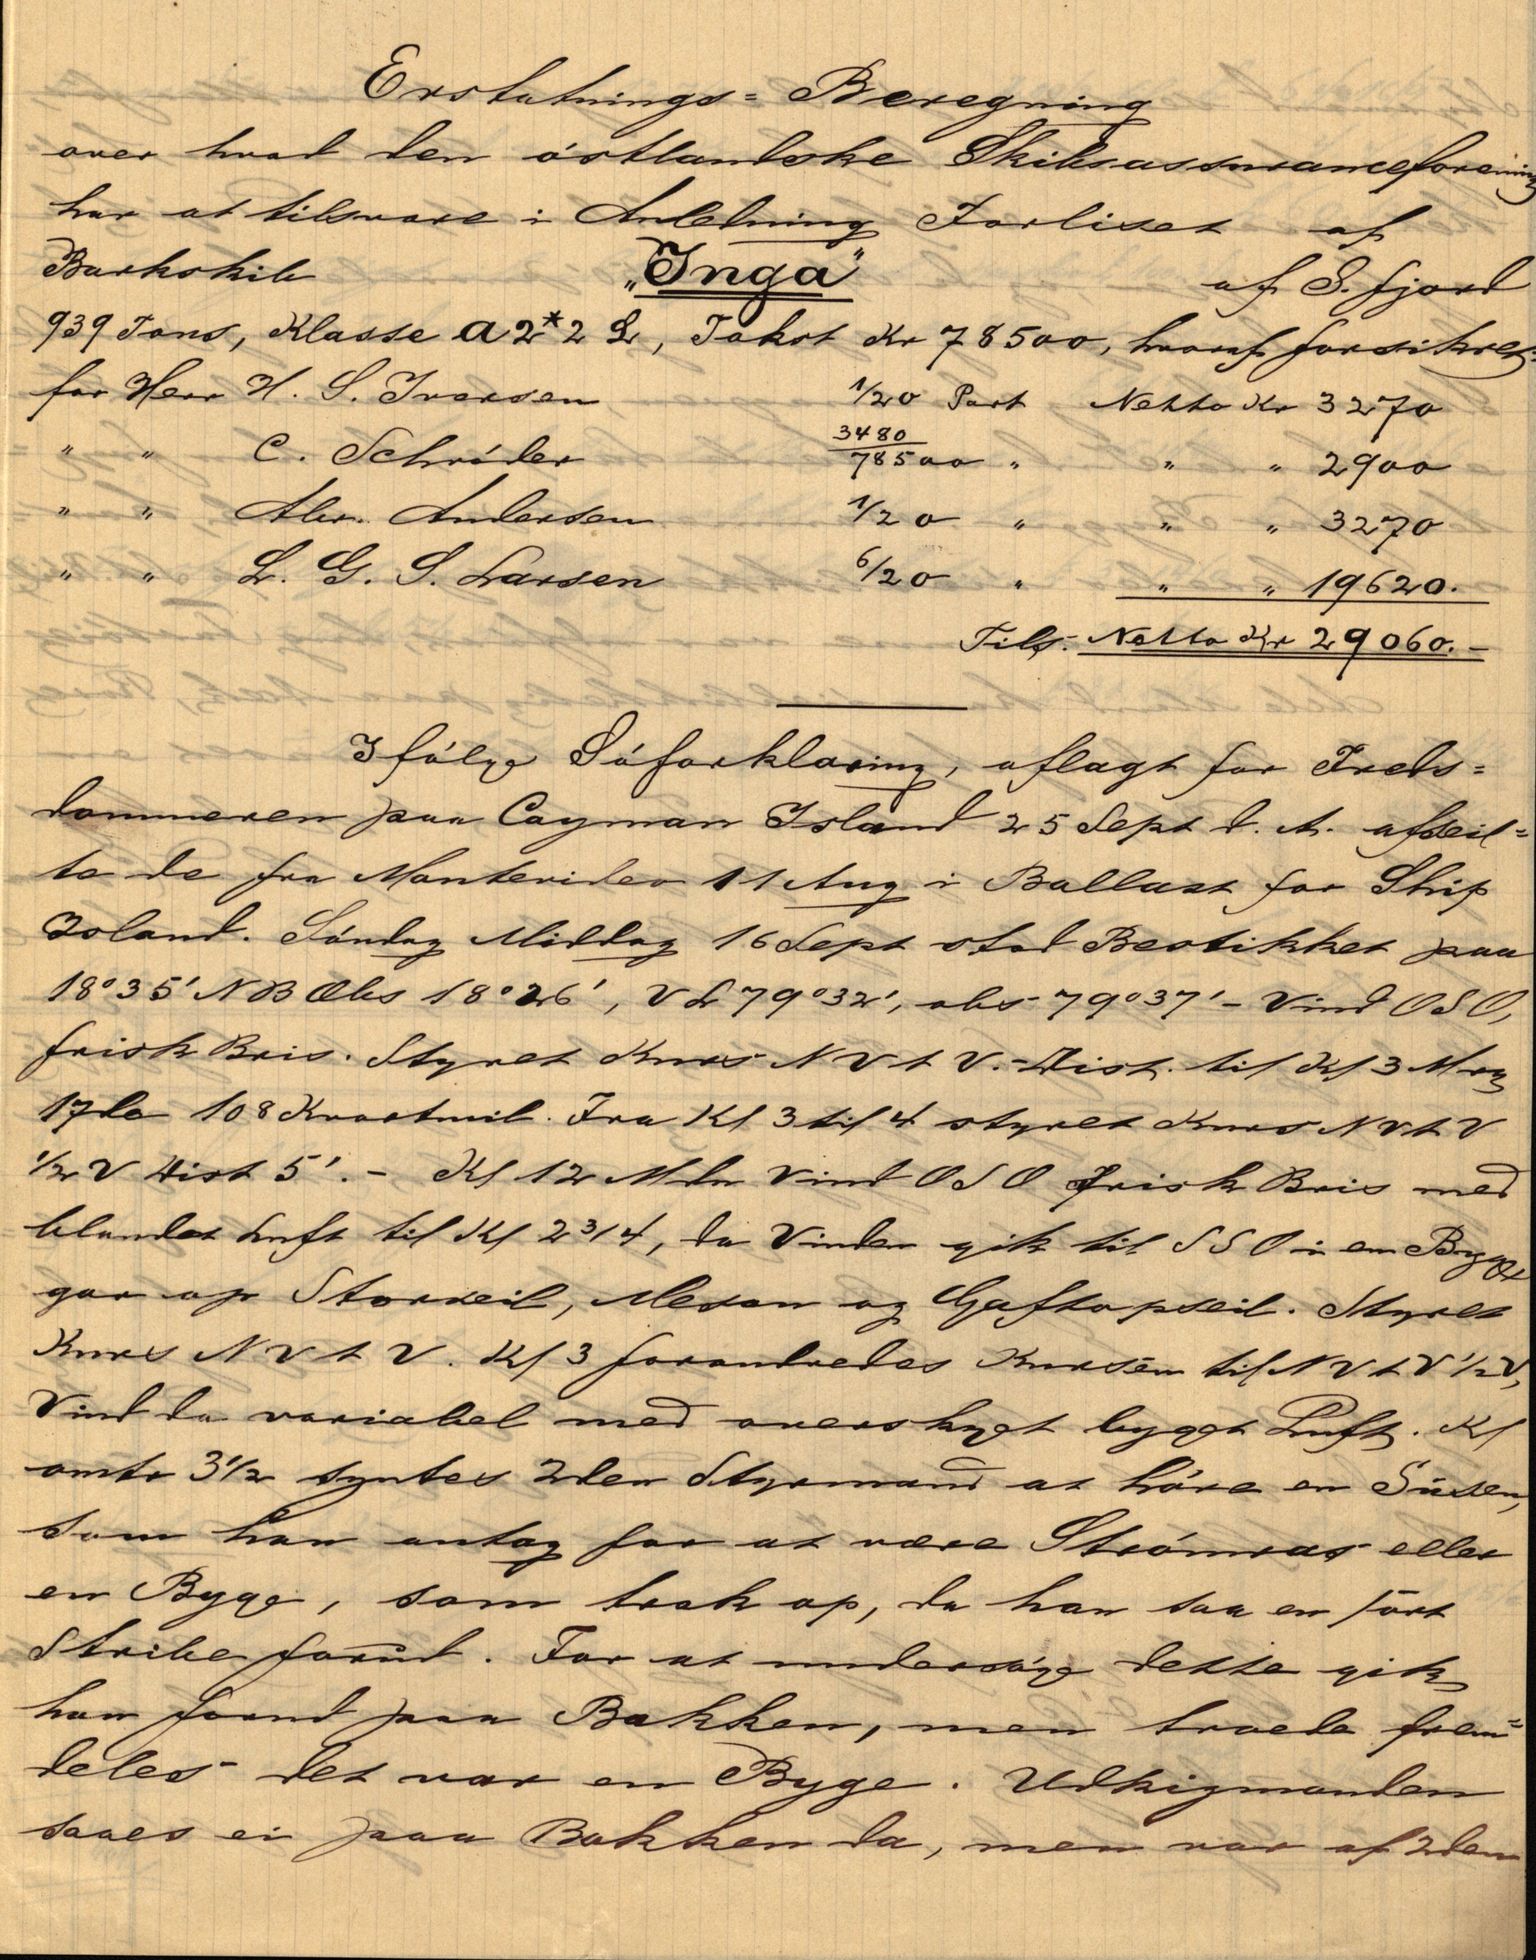 Erstatnings=Beregning
over hvad den östlandske Skibsassuranceforening
har at tilsvare i Anledning Forliset af
Barkskib „Inga" af S. fjord
939 Tons, Klasse A2*2 L, Takst Kr 78500, hvoraf forsikret:
for Herr H. S. Iversen 1/20 Part Netto Kr 3270
" " C. Schröder 3480/78500 " " " 2900
" " Alex. Andersen 1/20 " " " 3270
" " L. G. S. Larsen 6/20 " " " 19620.
Tils. Netto Kr 29060.-
Ifölge Söforklaring, aflagt for Freds=
dommeren paa Cayman Island 25 Sept d. A. afseil=
te de fra Montevideo 11 Aug i Ballast for Ship
Island. Söndag Middag 16 Sept stod Bestikket paa
18°35' NB Obs 18°26', VL 79°32', obs 79°37' - Vind OSO,
frisk Bris. Styret Kurs NVtV. - Dist. til Kl 3 Mrg
17de 108 Kvartmil. Fra Kl 3 til 4 styret Kurs NVtV
1/2 V Dist 5'. - Kl 12 Mdn Vind OSO frisk Bris med
blandet Luft til Kl 2 3/4, da Vinden gik til SSO i en Byge
gav op Storseil, Mesan og Gaftopseil. Styret
Kurs NVtV. Kl 3 forandredes Kursen til NVtV 1/2 V,
Vind da variabel med overskyet bygget Luft. Kl
omtr 3 1/2 syntes 2den Styrmand at höre en Susen,
som han antog for at være Strömras eller
en Byge, som trak op, da han saa en sort
Stribe forud. For at undersöge dette gik
han forud paa Bakken, men troede frem=
deles det var en Byge. Udkigmanden
saaes ei paa Bakken da, men var af 2den